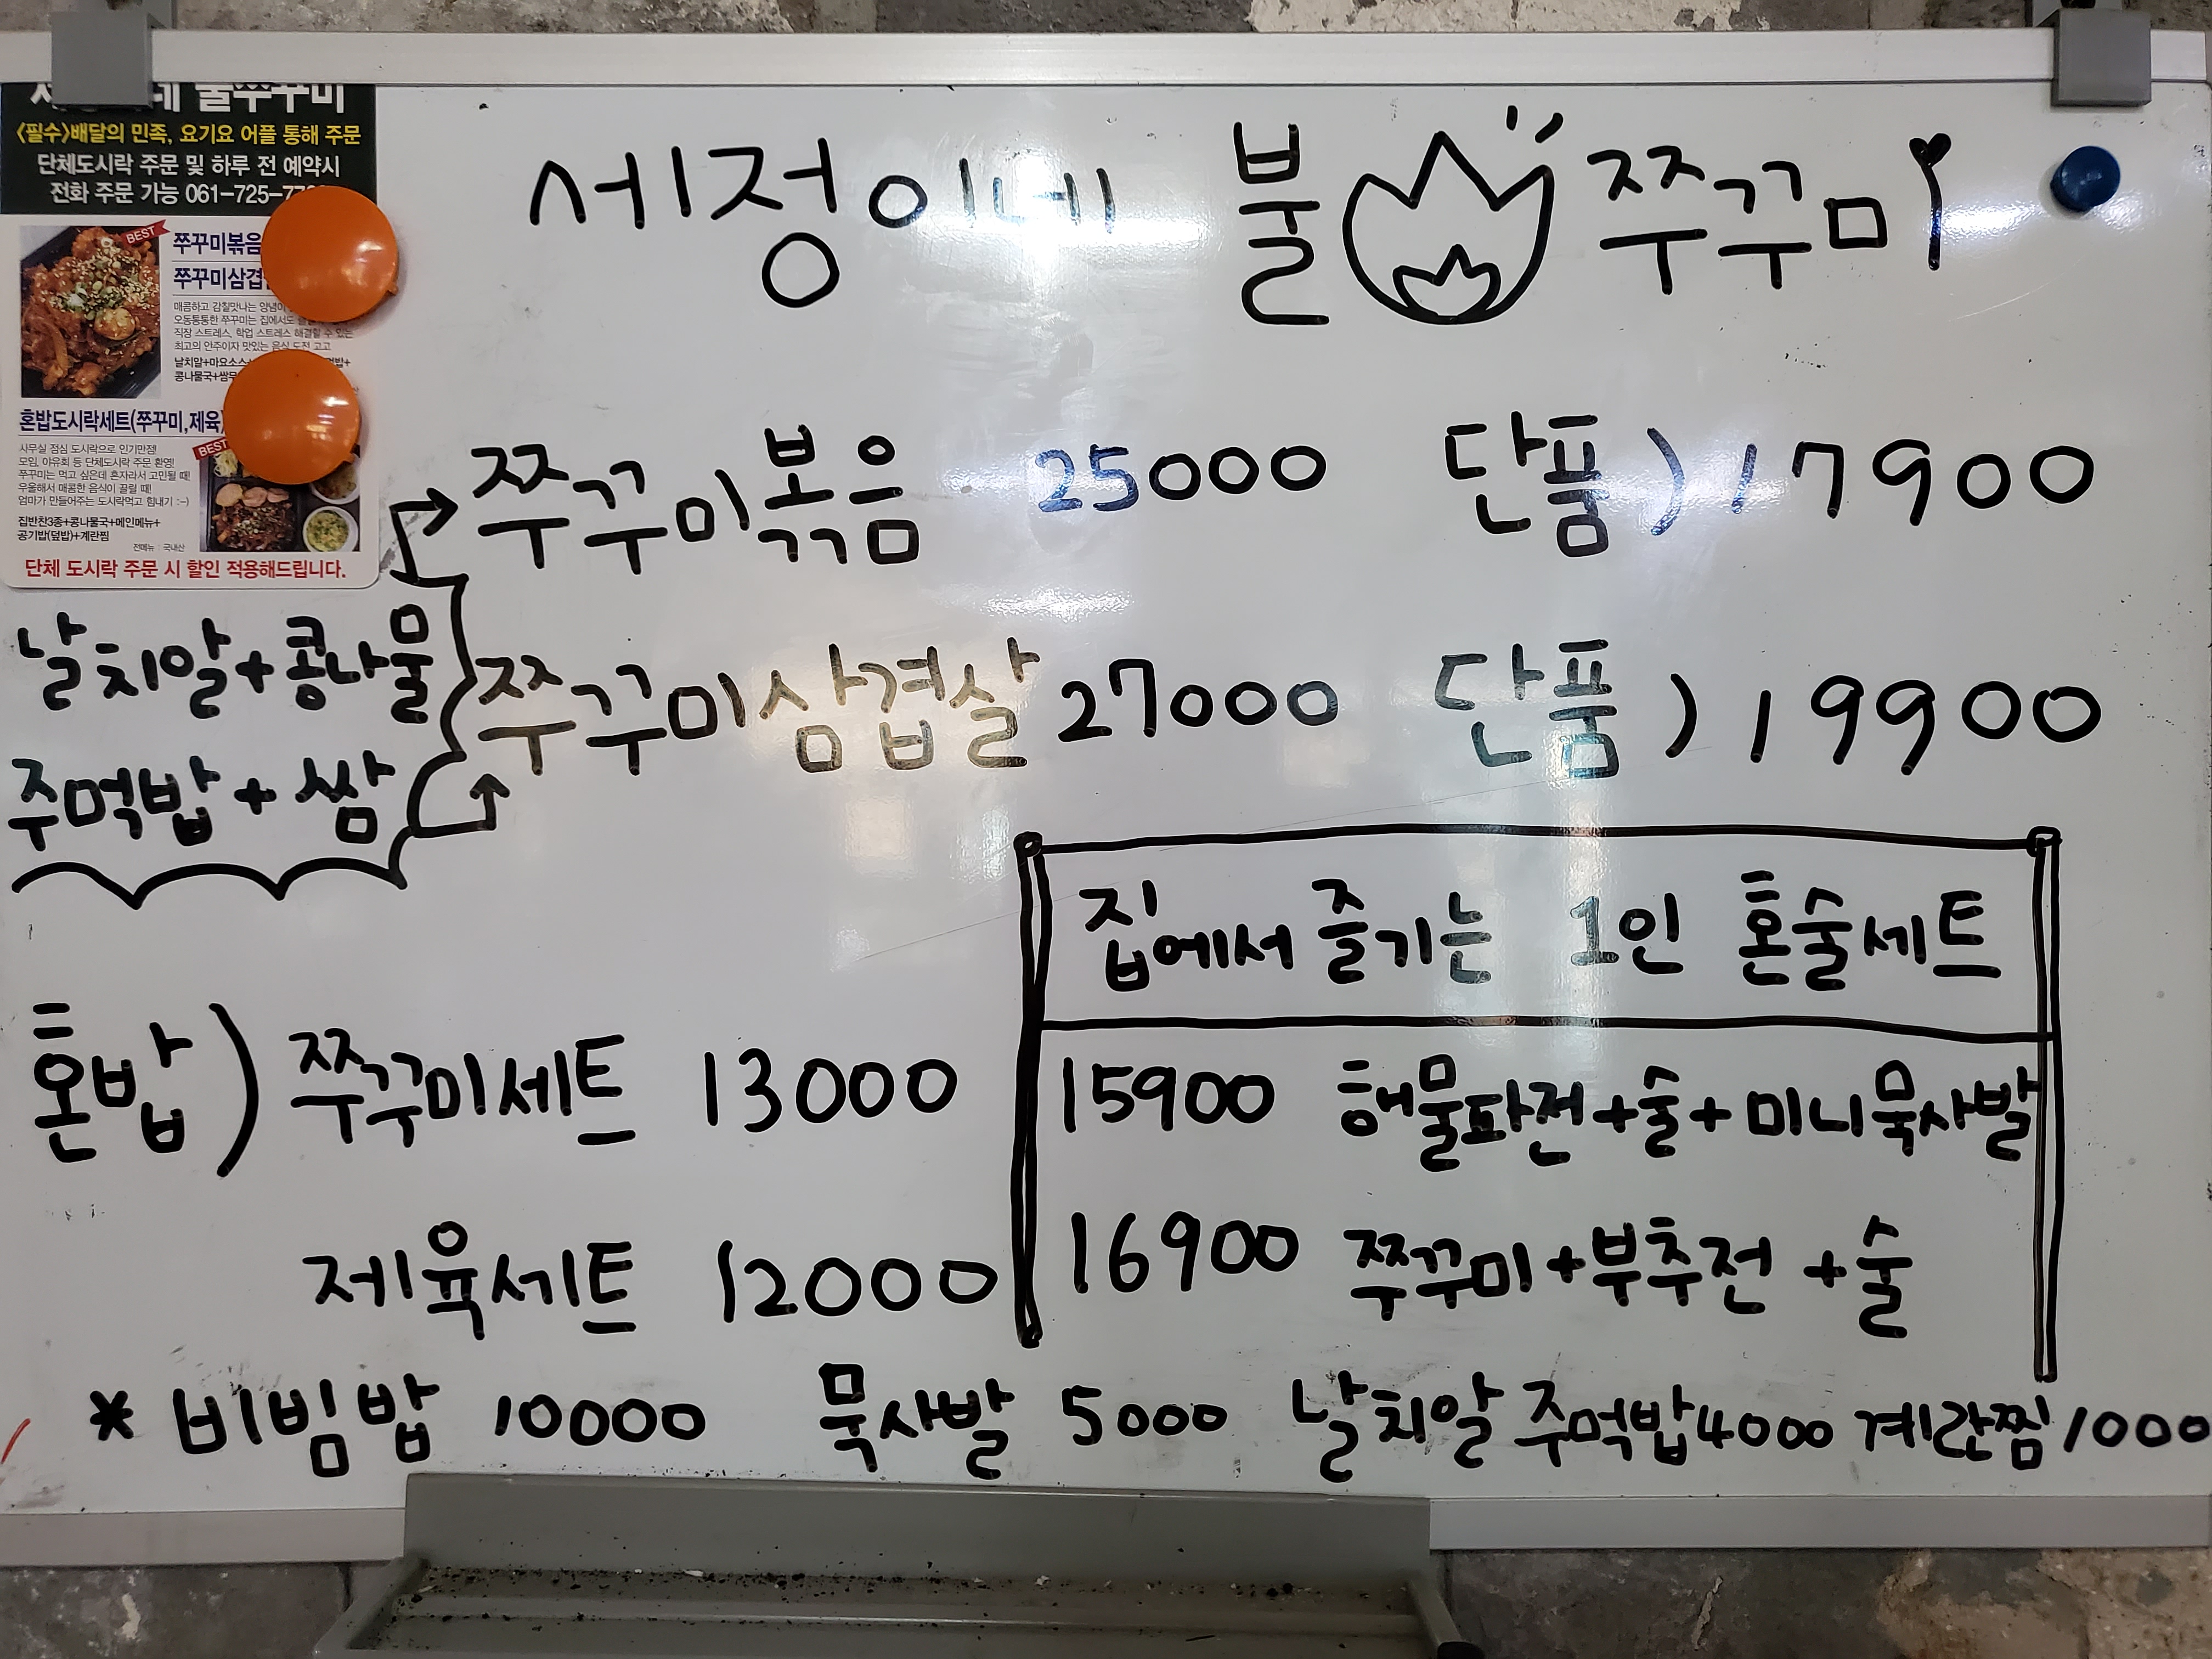 불쭈꾸미
<필수>배달의 민족, 요기요 어플 통해 주문
단체도시락 주문 및 하루 전 예약시
전화 주문 가능 061-725-7
BEST
쭈꾸미볶음
쭈꾸미삼겹
매콤하고 감칠맛나는
오동통통한 쭈꾸미는 집에서도
직장 스트레스, 학업 스트레스 해결할 수 있는
최고의 안주이자 맛있는 음식 도전 고고
날치알+마요소스+
콩나물국+쌈무
혼밥도시락세트(쭈꾸미,제육)
BEST
사무실 점심 도시락으로 인기만점!
모임, 야유회 등 단체도시락 주문 환영!
쭈꾸미는 먹고 싶은데 혼자라서 고민될 때!
우울해서 매콤한 음식이 끌릴 때!
엄마가 만들어주는 도시락먹고 힘내기 :-)
집반찬3종+콩나물국+메인메뉴+
공기밥(덮밥)+계란찜
전메뉴 : 국내산
단체 도시락 주문 시 할인 적용해드립니다.
세정이네 불 쭈꾸미
쭈꾸미볶음 25000 단품) 17900
쭈꾸미삼겹살 27000 단품) 19900
날치알+콩나물
주먹밥+쌈
혼밥) 쭈꾸미세트 13000
제육세트 12000
집에서 즐기는 1인 혼술세트
15900 해물파전+술+미니묵사발
16900 쭈꾸미+부추전+술
* 비빔밥 10000 묵사발 5000 날치알 주먹밥 4000 계란찜 1000